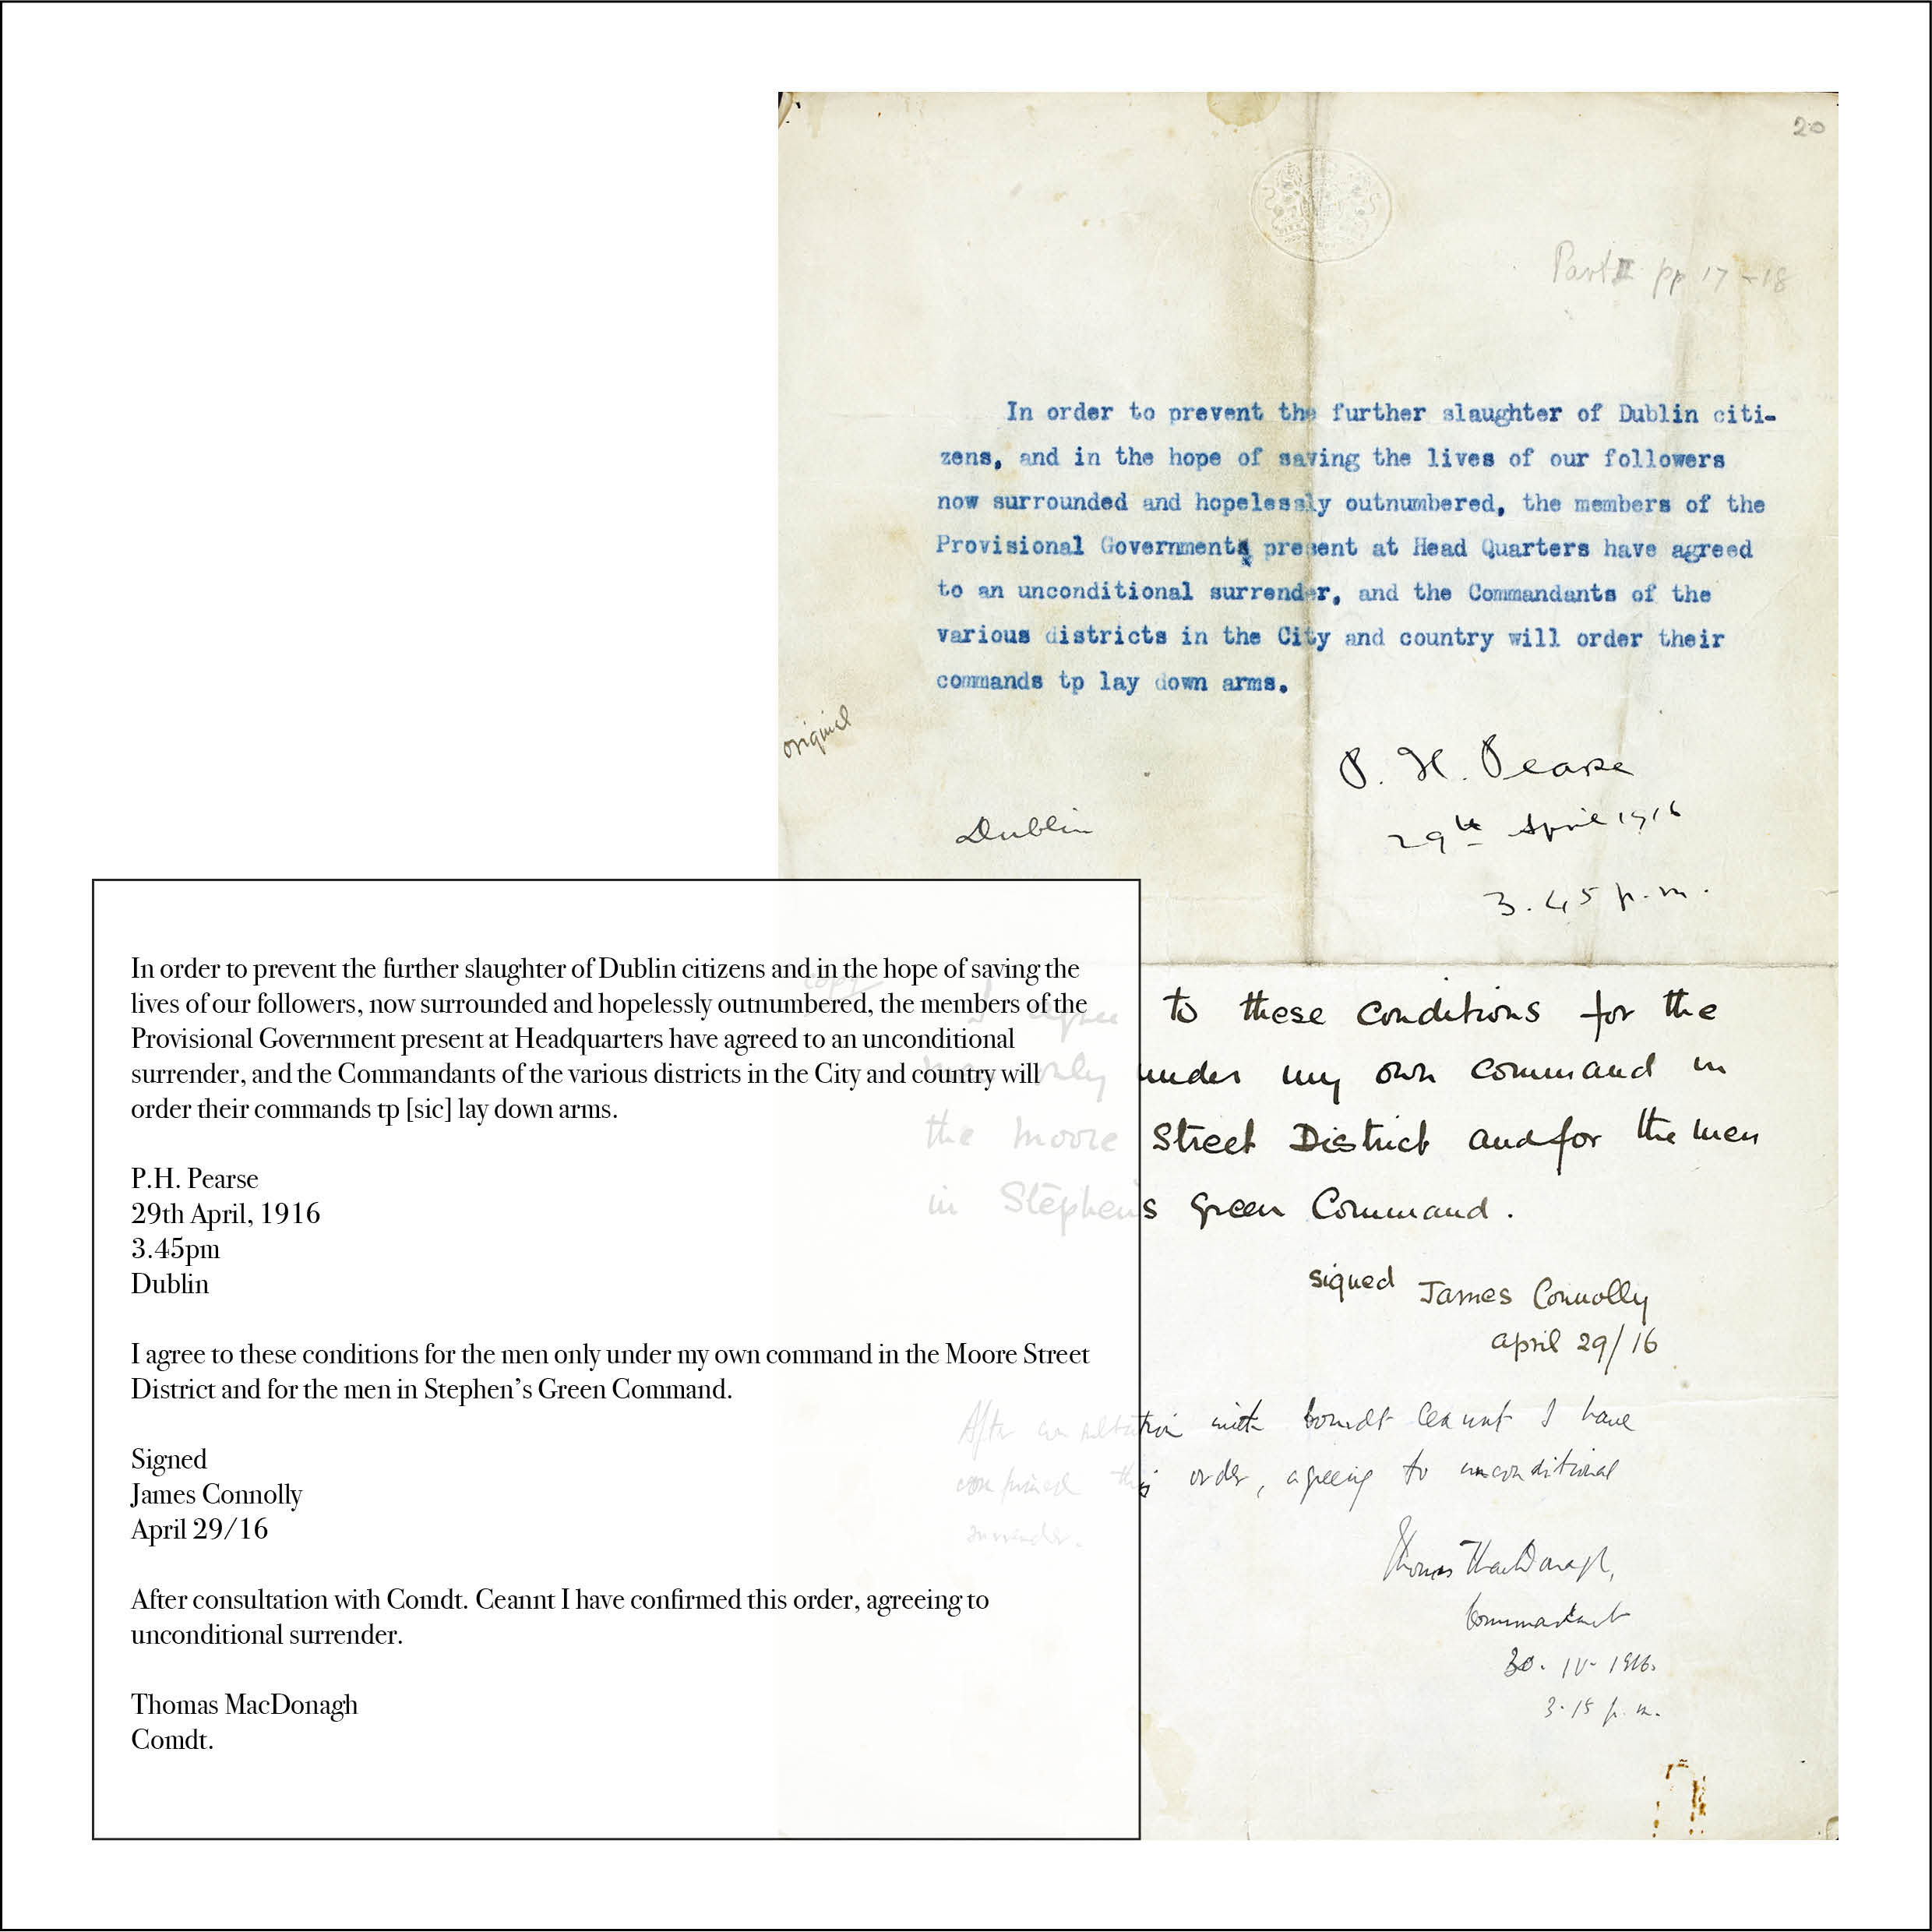 20
Part II pp 17-18
In order to prevent the further slaughter of Dublin citi-
zens, and in the hope of saving the lives of our followers
now surrounded and hopelessly outnumbered, the members of the
Provisional Government present at Head Quarters have agreed
to an unconditional surrender, and the Commandants of the
various districts in the City and country will order their
commands tp lay down arms.
original
P. H. Pearse
29th April 1916
3.45 p.m.
Dublin
copy
I agree to these conditions for the
men only under my own command in
the Moore Street District and for the men
in Stephen's Green Command.
signed James Connolly
April 29/16
After consultation with Comdt Ceannt I have
confirmed this order, agreeing to unconditional
surrender.
Thomas MacDonagh,
Commandant
30. IV. 1916.
3.15 p.m.
In order to prevent the further slaughter of Dublin citizens and in the hope of saving the
lives of our followers, now surrounded and hopelessly outnumbered, the members of the
Provisional Government present at Headquarters have agreed to an unconditional
surrender, and the Commandants of the various districts in the City and country will
order their commands tp [sic] lay down arms.
P.H. Pearse
29th April, 1916
3.45pm
Dublin
I agree to these conditions for the men only under my own command in the Moore Street
District and for the men in Stephen’s Green Command.
Signed
James Connolly
April 29/16
After consultation with Comdt. Ceannt I have confirmed this order, agreeing to
unconditional surrender.
Thomas MacDonagh
Comdt.